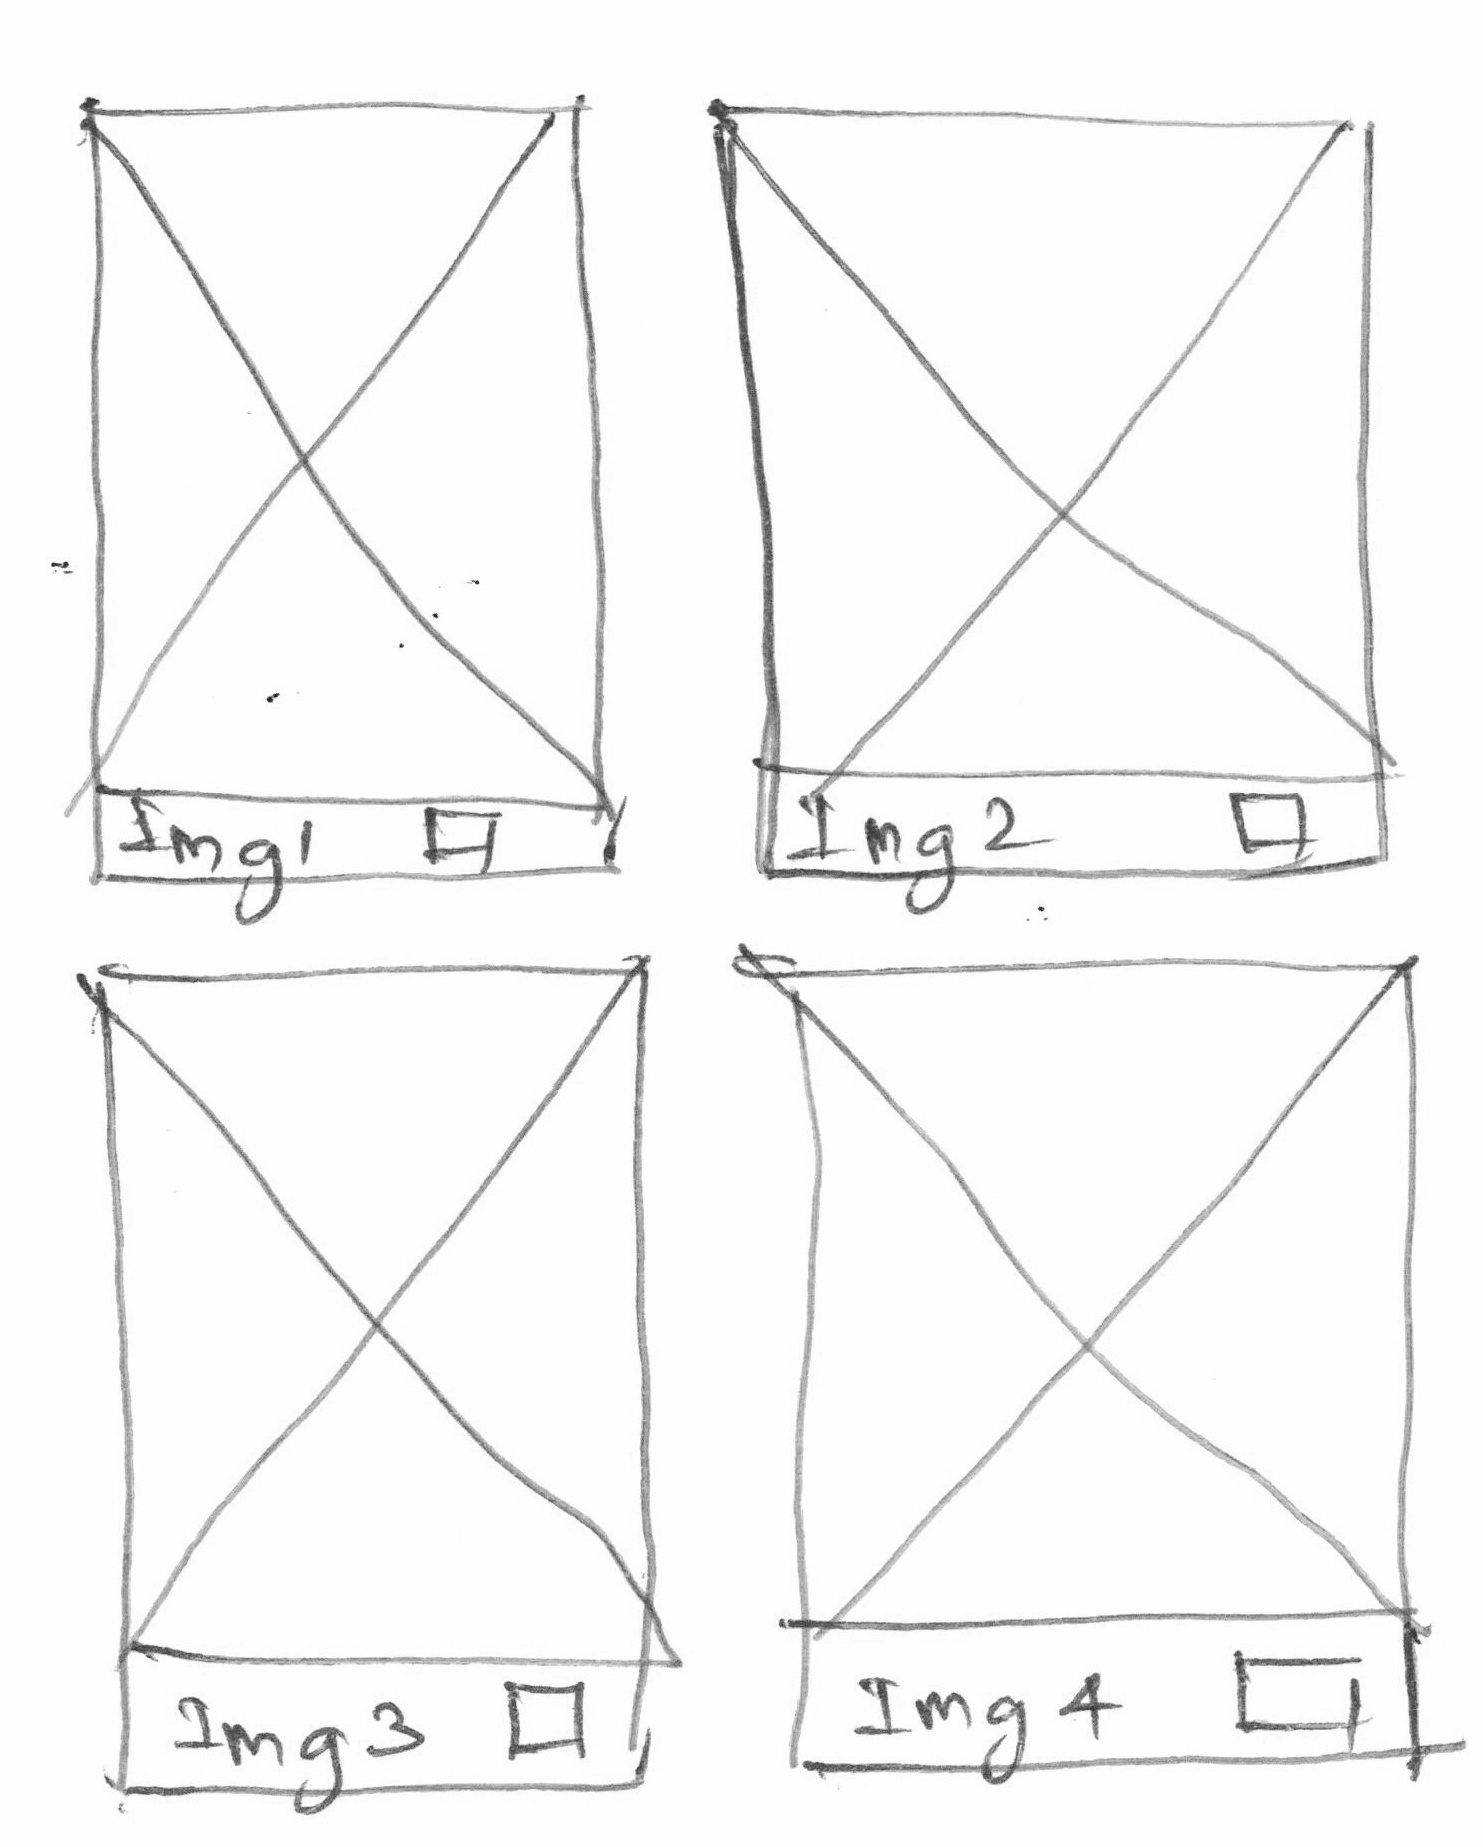 Img1
Img 2
Img 3
Img 4